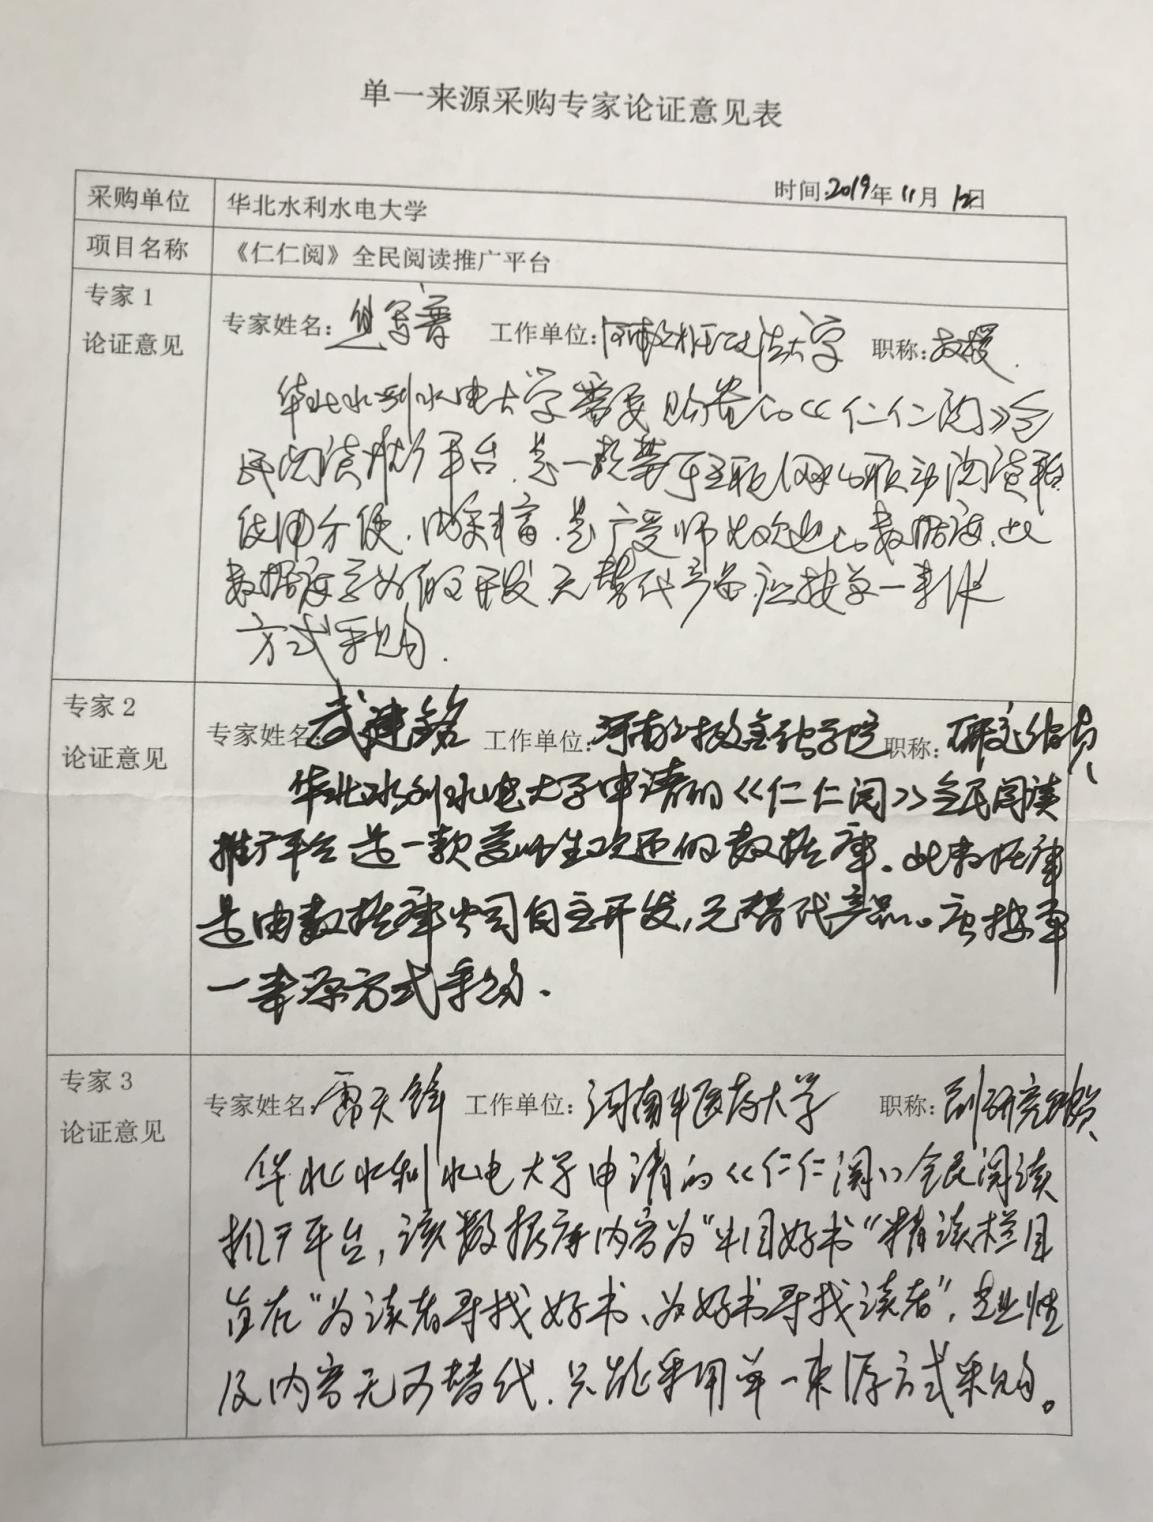 单一来源采购专家论证意见表
时间:2019年11月12日
采购单位 华北水利水电大学
项目名称 《仁仁阅》全民阅读推广平台
专家1
论证意见
专家姓名: 工作单位: 政法大学 职称:教授
华北水利水电大学需要购置的《仁仁阅》全
民阅读推广平台,是一款基于互联网的移动阅读平台
使用方便,内容丰富,是广受师生欢迎的数据库,此
数据库公司自主开发,无替代产品,应按单一来源
方式采购.
专家2
论证意见
专家姓名:武建铭 工作单位:河南财政金融学院 职称:研究馆员
华北水利水电大学申请的《仁仁阅》全民阅读
推广平台是一款受师生欢迎的数据库。此数据库
是由数据库公司自主开发,无替代产品。应按单
一来源方式采购.
专家3
论证意见
专家姓名: 工作单位:河南中医药大学 职称:副研究馆员
华北水利水电大学申请的《仁仁阅》全民阅读
推广平台,该数据库内容为"中国好书"精读栏目
旨在"为读者寻找好书、为好书寻找读者",专业性
及内容无可替代,只能采用单一来源方式采购。